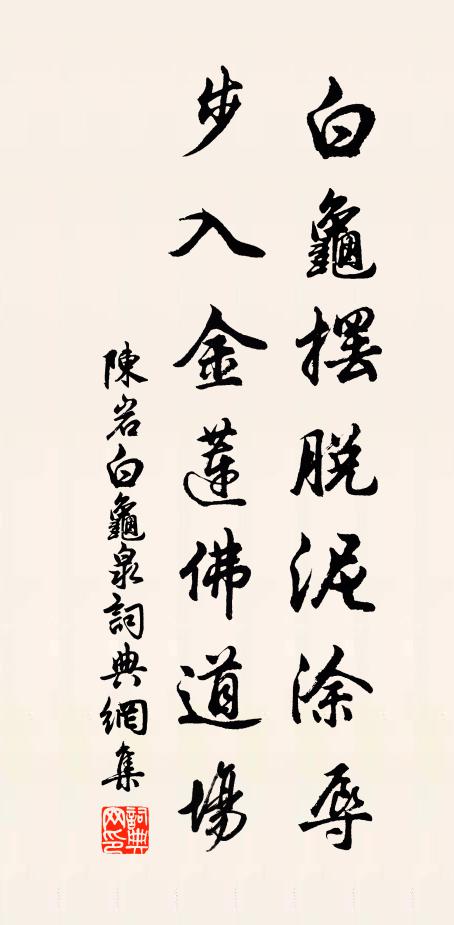 白龜擺脫泥涂辱
步入金蓮佛道場
陳岩白龜泉詞典網集
詞典网印